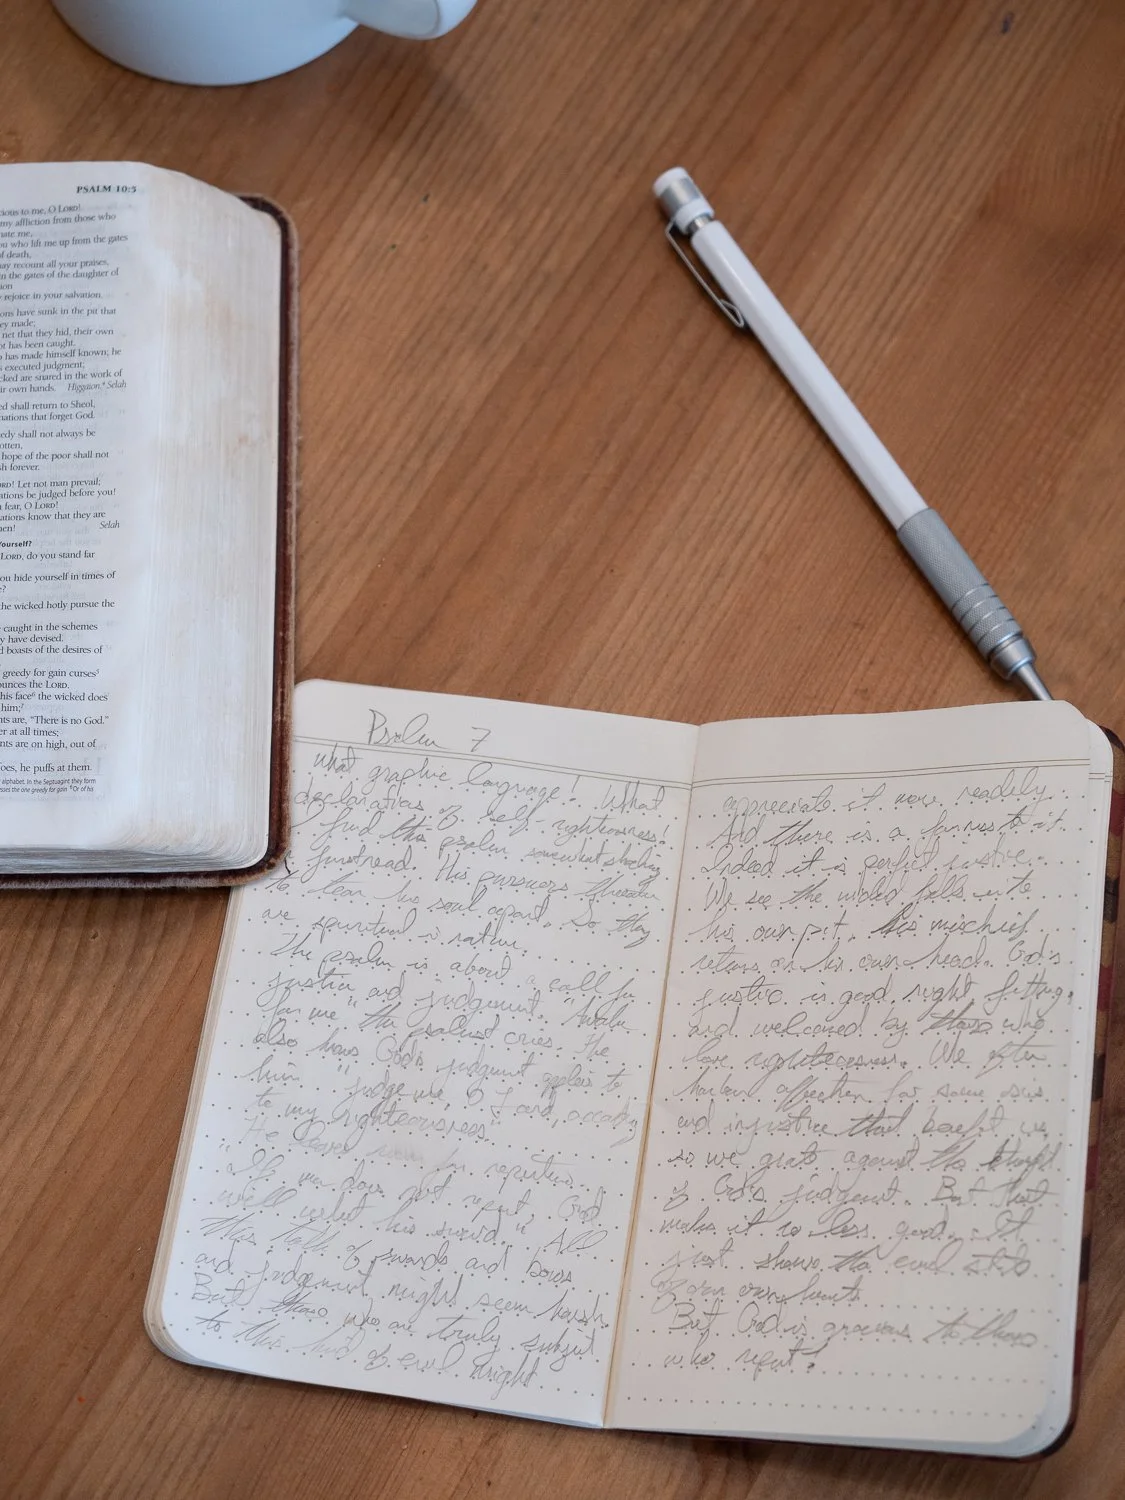 PSALM 10:5
cious to me, O LORD!
my affliction from those who
hate me,
ou who lift me up from the gates
of death,
may recount all your praises,
n the gates of the daughter of
ion
rejoice in your salvation.
ons have sunk in the pit that
ey made;
net that they hid, their own
ot has been caught.
has made himself known; he
s executed judgment;
cked are snared in the work of
ir own hands. Higgaion. Selah
ed shall return to Sheol,
nations that forget God.
edy shall not always be
otten,
hope of the poor shall not
sh forever.
ORD! Let not man prevail;
ations be judged before you!
fear, O LORD!
ations know that they are
en! Selah
Yourself?
LORD, do you stand far
ou hide yourself in times of
e?
the wicked hotly pursue the
caught in the schemes
y have devised.
d boasts of the desires of
greedy for gain curses
ounces the LORD.
his face the wicked does
him;
nts are, "There is no God."
er at all times;
nts are on high, out of
oes, he puffs at them.
alphabet. In the Septuagint they form
sses the one greedy for gain Or of his
Psalm 7
what graphic language! What
declarations of self-righteousness!
I find this psalm somewhat shocking
His pursuers threaten
to tear his soul apart. So they
are spiritual in nature.
The psalm is about a call for
justice and judgment. "Awake
for me" the psalmist cries. He
also knows God's judgment applies to
him "judge me, O Lord, according
to my righteousness".
He for repentance.
"If man does not repent, God
will whet his sword." All
this talk of swords and bows
and judgment might seem harsh.
But those who are truly subject
to this kind of evil might
appreciate it more readily.
And there is a fairness to it.
Indeed it is perfect justice.
We see the wicked falls into
his own pit, his mischief
returns on his own head. God's
justice is good, right, fitting,
and welcomed by those who
love righteousness. We often
harbor affection for some sins
and injustice that benefit us,
so we grate against the thought
of God's judgment. But that
makes it no less good. It
just shows the evil state
of our own hearts.
But God is gracious to those
who repent!